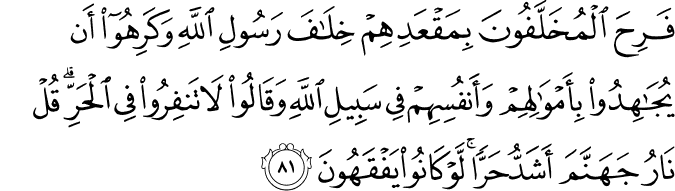 فَرِحَ ٱلْمُخَلَّفُونَ بِمَقْعَدِهِمْ خِلَٰفَ رَسُولِ ٱللَّهِ وَكَرِهُوٓا۟ أَن
يُجَٰهِدُوا۟ بِأَمْوَٰلِهِمْ وَأَنفُسِهِمْ فِى سَبِيلِ ٱللَّهِ وَقَالُوا۟ لَا تَنفِرُوا۟ فِى ٱلْحَرِّ ۗ قُلْ
نَارُ جَهَنَّمَ أَشَدُّ حَرًّا ۚ لَّوْ كَانُوا۟ يَفْقَهُونَ ٨١